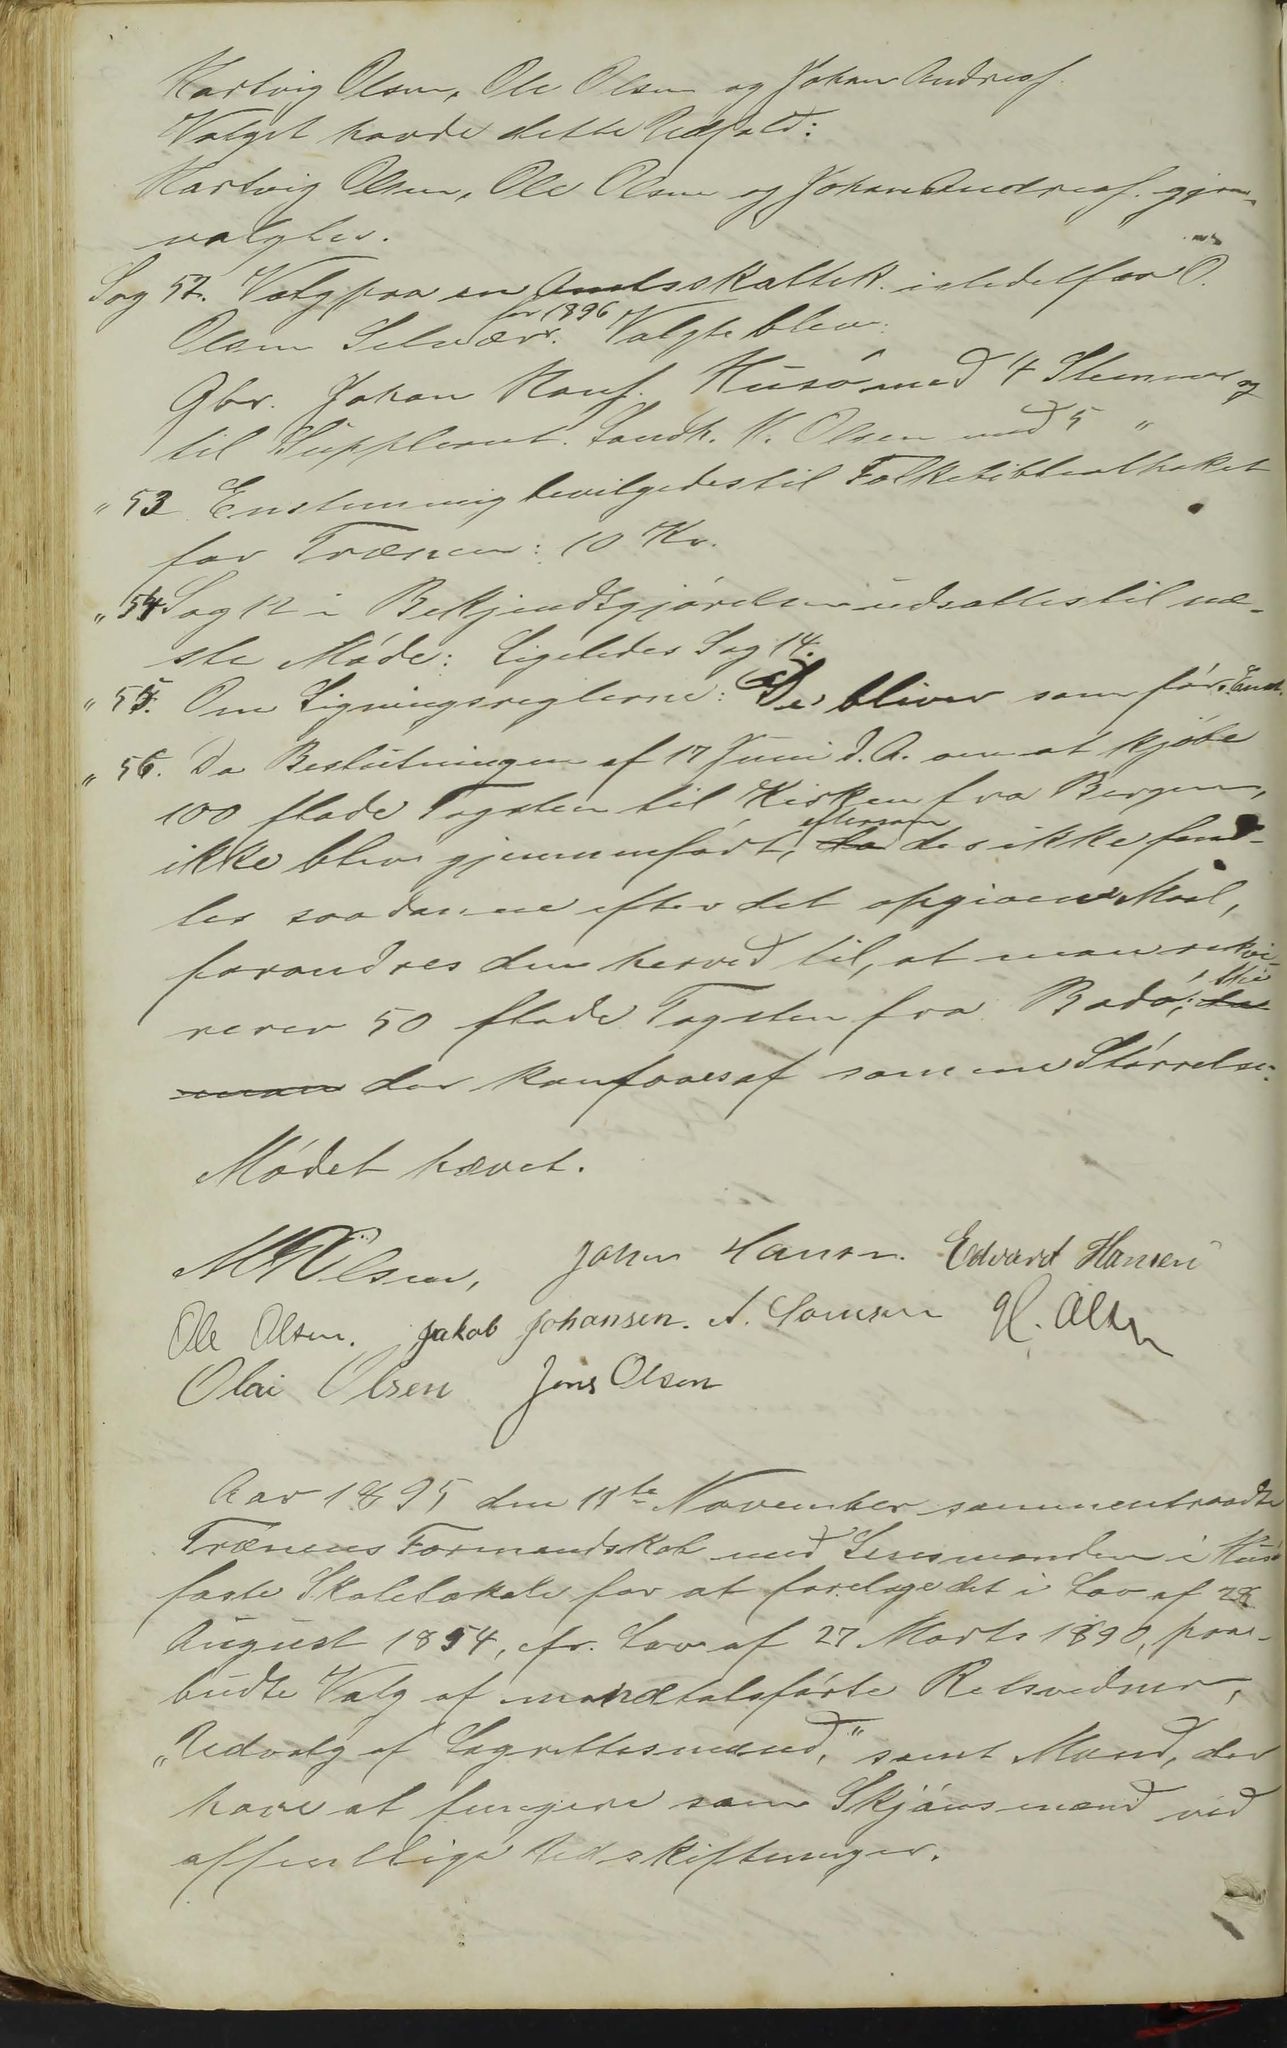 Hartvig Olsen, Ole Olsen og Johan Andreas.
Valget havde dette Udfald:
Hartvig Olsen, Ole Olsen og Johan Andreas. gjen-
valgtes.
Sag 52. Valg paa en Amtsskattek. istedetfor O.
Olsen Selvær for 1896. Valgte blev:
Gbr. Johan Hans. Husø med 4 Stemmer og
til Suppleant. Landh. K. Olsen med 5 "
" 53 Enstemmig bevilgedes til Folkebibliotheket
for Trænen: 10 Kr.
" 54 Sag 12 i Bekjendtgjørelsen udsattes til næ-
ste Møde: Ligeledes Sag 14.
" 55. Om Ligningsreglerne: De bliver som før. Enst.
" 56. Da Beslutningen af 17 Juni d. A. om at kjøbe
100 flade Tagsten til Kirken fra Bergen,
ikke blev gjennemført, da eftersom der ikke fand-
tes saadanne efter det opgivne Maal,
forandres den herved til, at man rekvi-
rerer 50 flade Tagsten fra Bodø;
man der kan faaes af samme Størrelse.
Mødet hævet.
Johan Hansen. Edvard Hansen
Ole Olsen. Jakob Johansen. H. Olsen
Olai Olsen Jens Olsen
Aar 1895 den 11te November sammentraadte
Trænens Formandskab med Lensmanden i Husø
faste Skolelokale for at foretage det i Lov af 28
August 1854, cfr. Lov af 27 Marts 1890, paa-
budte Valg af mandtalsførte Retsvidner,
"Udvalg af Lagrettesmænd," samt Mænd, der
have at fungere som Skjønsmænd ved
offentlige Udskiftninger.